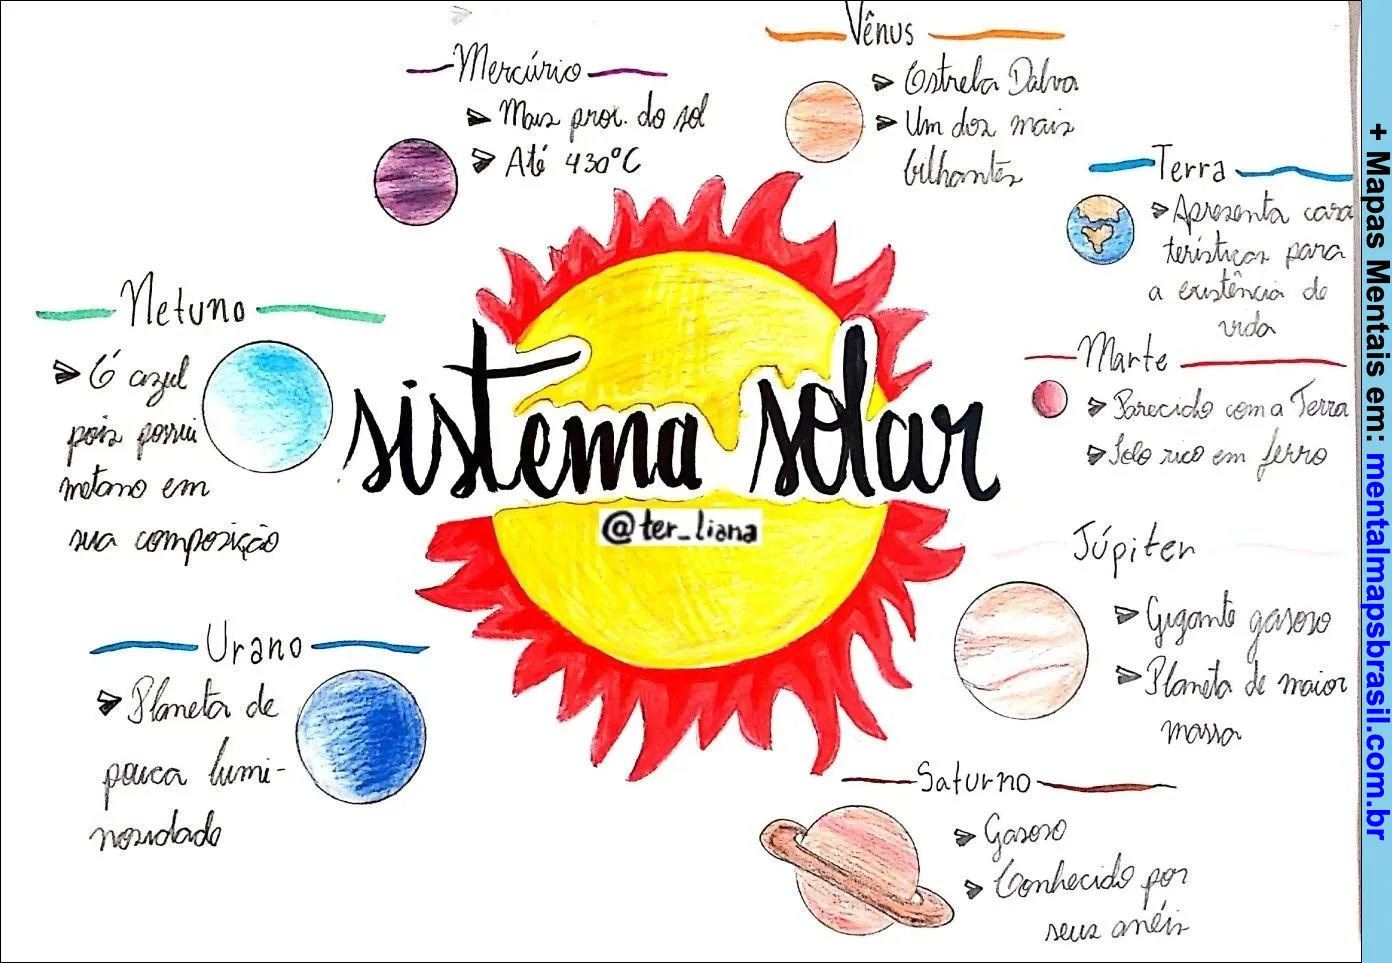 Vênus
Estrela Dalva
Um dos mais
brilhantes
Mercúrio
Mais prox. do sol
Até 430°C
Terra
Apresenta carac
terísticas para
a existência de
vida
Netuno
É azul
pois possui
metano em
sua composição
sistema solar
@ter_liana
Marte
Parecido com a Terra
Solo rico em ferro
Júpiter
Gigante gasoso
Planeta de maior
massa
Urano
Planeta de
pouca lumi-
nosidade
Saturno
Gasoso
Conhecido por
seus anéis
+ Mapas Mentais em: mentalmapsbrasil.com.br